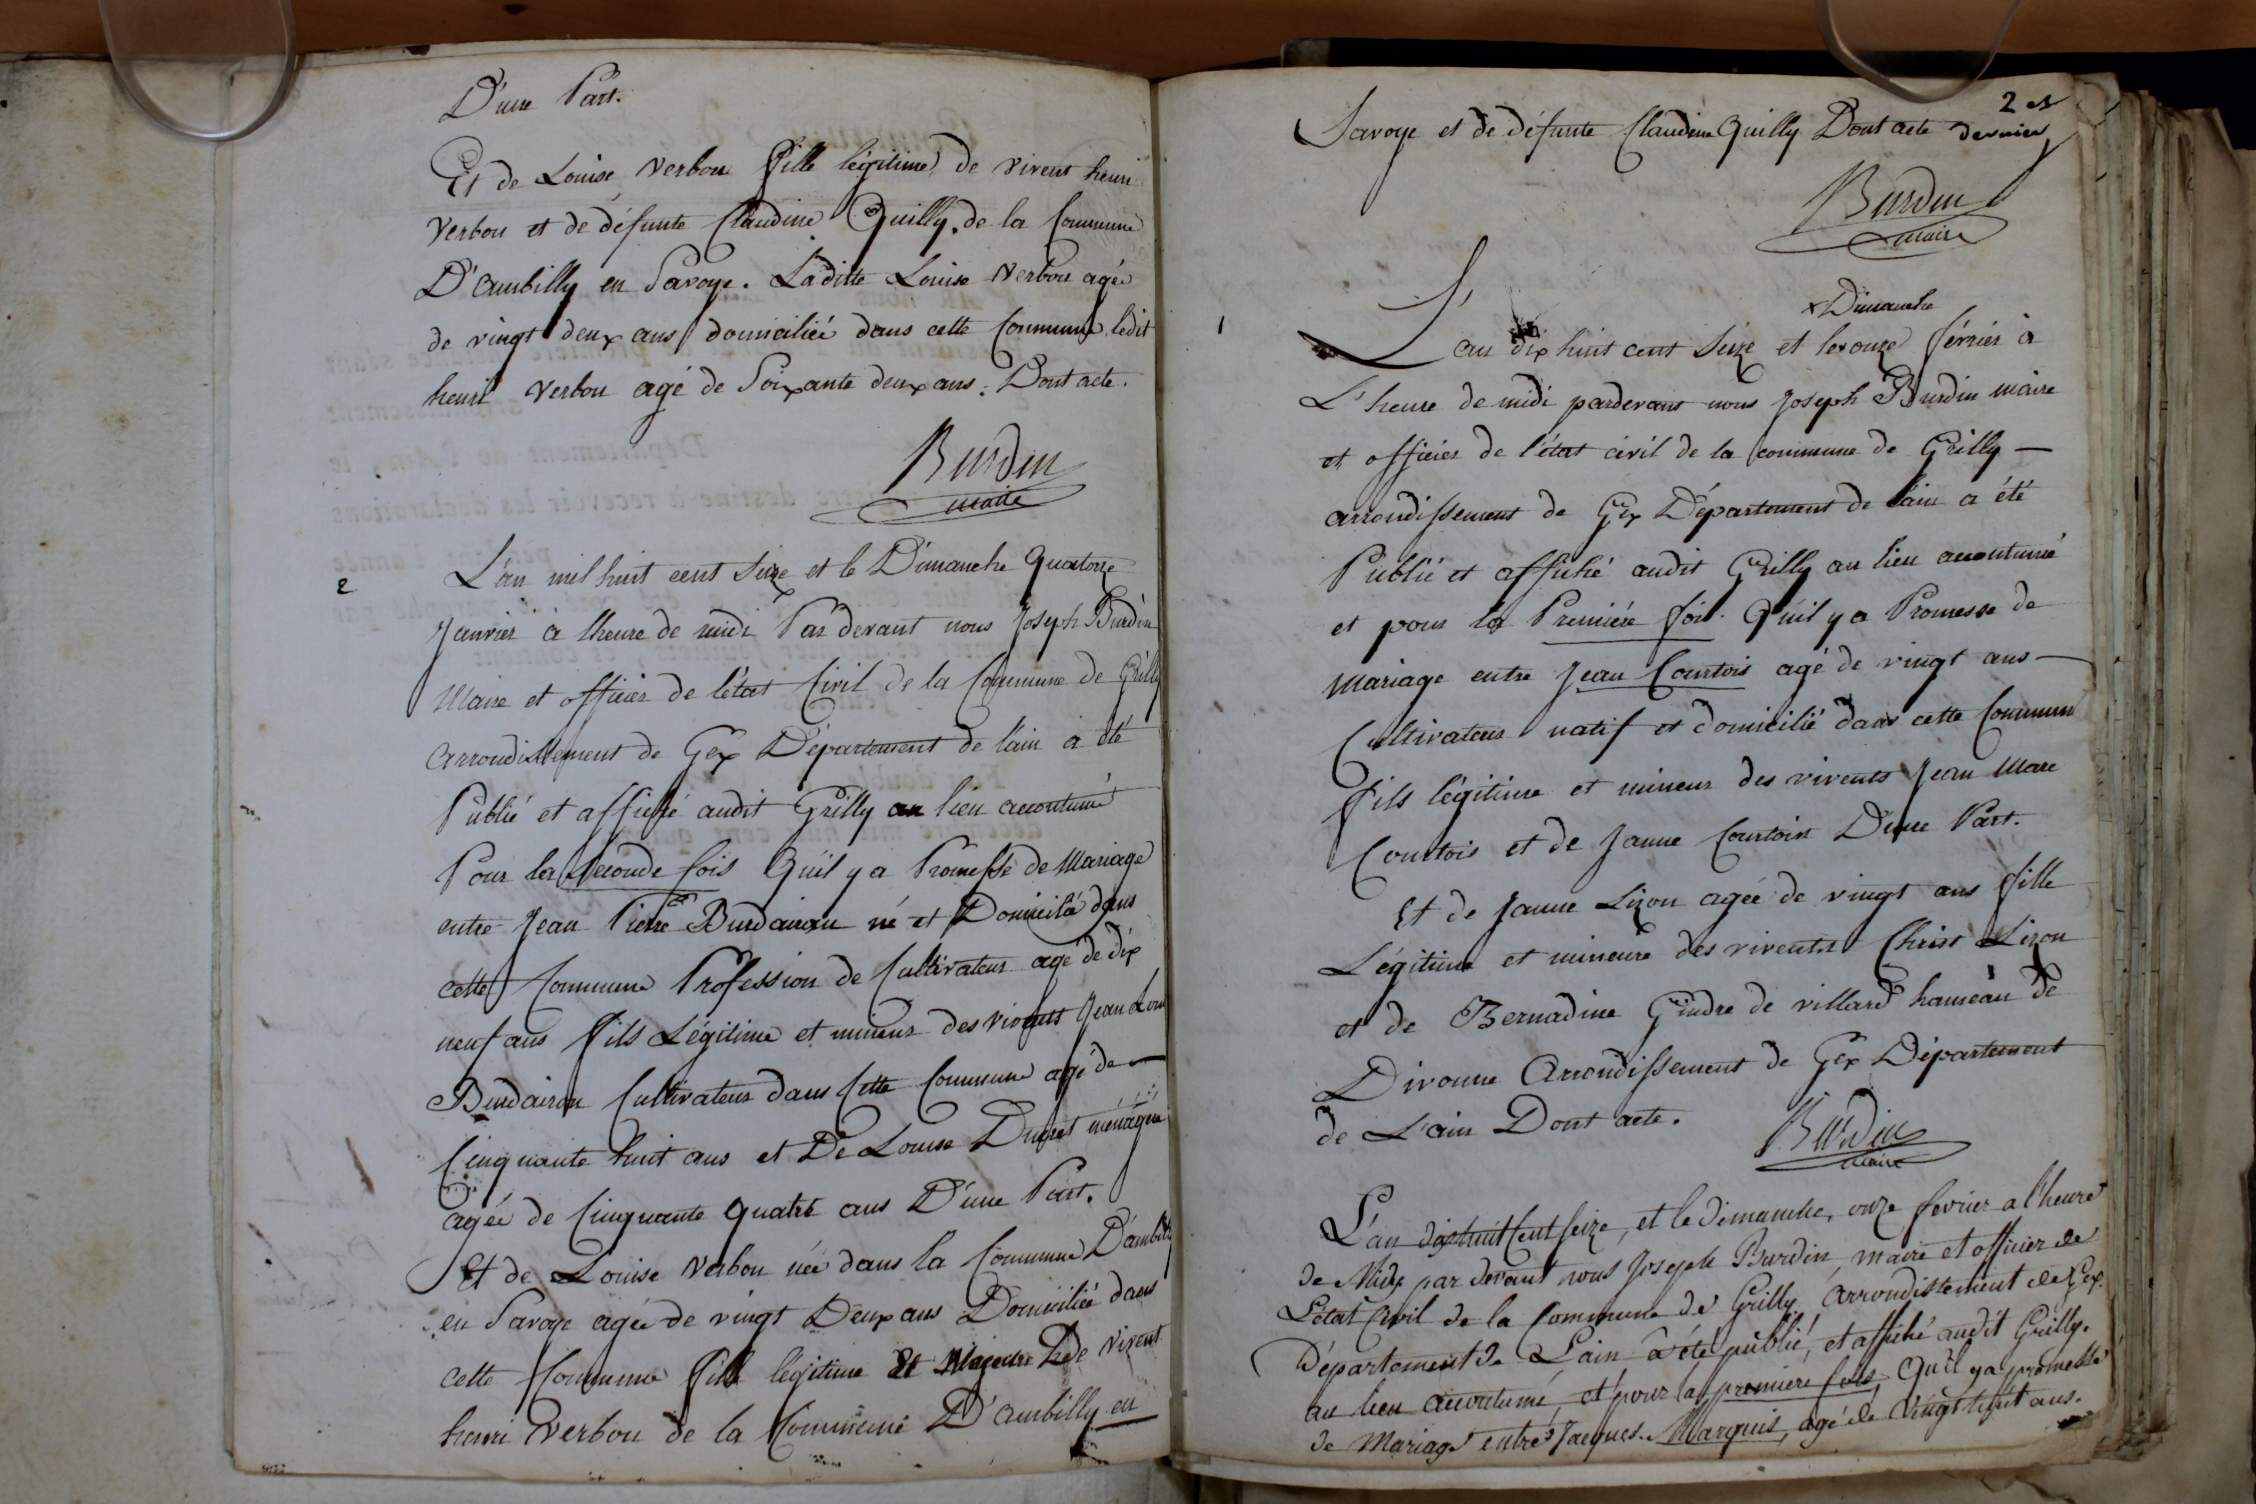 D'une Part.
Et de Louise Verbou fille légitime de vivent henri
Verbou et de défunte Claudine Quilly. de la Commune
D'ambilly en Savoye. Laditte Louise Verbou agée
de vingt deux ans domiciliée dans cette Commune ledit
henri Verbou agé de Soixante deux ans. Dont acte.
Burdin
maire
2
L'an mil huit cent Seize et le Dimanche Quatorze
Janvier à lheure de midi Par devant nous Joseph Burdin
Maire et officier de létat Civil de la Commune de Grilly
arrondissement de Gex Département de lain a été
Publié et affiché audit Grilly au lieu accoutumé
Pour la Seconde fois Qu'il y a Promesse de Mariage
entre Jean Pierre Burdairon né et Domicilié dans
cette Commune Profession de Cultivateur agé de dix
neuf ans fils Légitime et mineur des vivents Jean Loui
Burdairon Cultivateur dans Cette Commune agé de —
Cinquante huit ans et De Louise Ducret ménagère
agée de Cinquante quatre ans D'une Part.
Et de Louise Verbou née dans la Commune D'ambilly
en Savoye agée de vingt Deux ans Domiciliée dans
cette Commune fille légitime Et Majeure De vivent
henri Verbou de la Commune D'ambilly en
2 et
dernier
Savoye et de défunte Claudine Quilly Dont acte
Burdin
maire
1
x Dimanche
L'an dix huit cent Seize et le x onze février à
L'heure de midi pardevant nous Joseph Burdin maire
et officier de l'état civil de la commune de Grilly —
arrondissement de Gex Département de lain a été
Publié et affiché audit Grilly au lieu accoutumé
et pour la Première fois. Qu'il y a Promesse de
Mariage entre Jean Courtois agé de vingt ans —
Cultivateur natif et domicilié dans cette Commune
fils légitime et mineur des vivents Jean Marc
Courtois et de Janne Courtois D'une Part.
Et de Janne Lizon agée de vingt ans fille
Légitime et mineure des vivents Christ Lizon
et de Bernadine Gindre de villard hameau de
Divonne Arrondissement de Gex Département
de L'ain Dont acte.
Burdin
maire
L'an dixhuit Cent Seize, et le dimanche, onze fevrier a l'heure
de Midy par devant nous Joseph Burdin, maire et officier de
L'état Civil de la Commune de Grilly, arrondissement de Gex
Département de L'ain à été publié, et affiché audit Grilly.
au lieu accoutumé, et pour la première fois, Qu'il ya promesse
de Mariage entre Jacques Marquis, agé de Vingt huit ans.